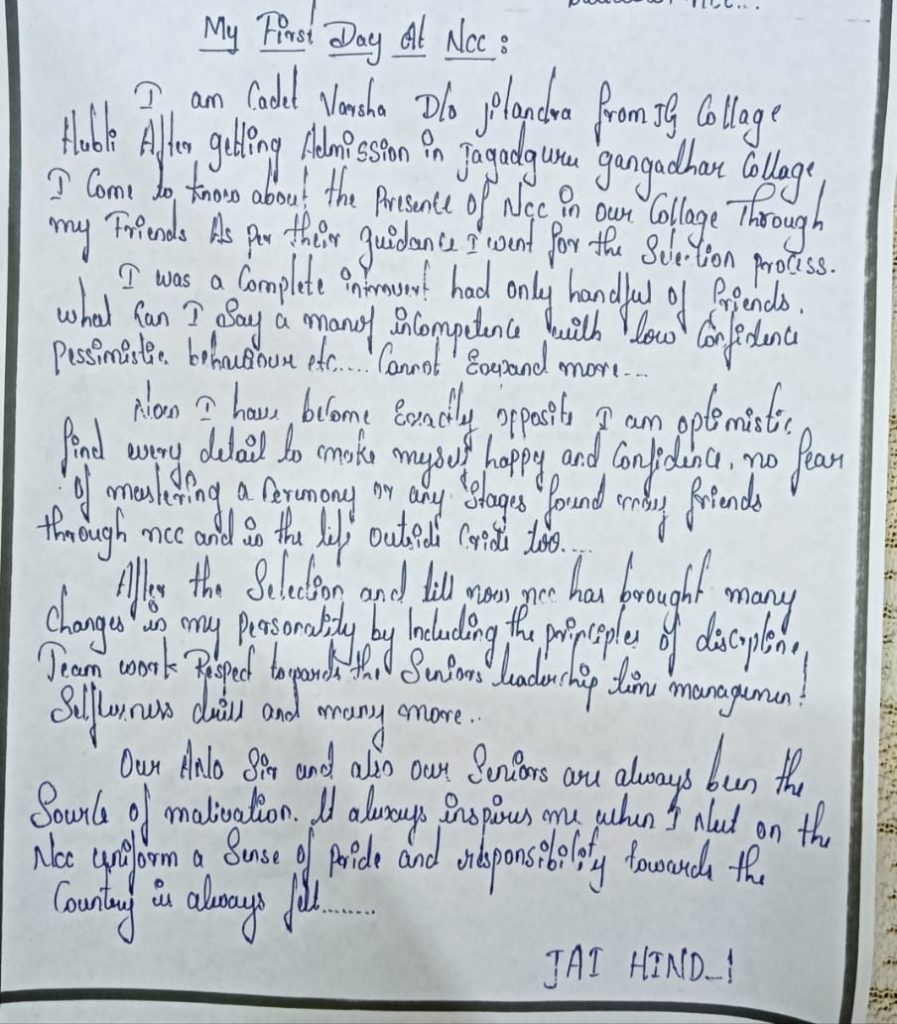 Ncc...
My First Day At Ncc :
I am Cadet Varsha D/o jitandra from JG Collage
Hubli After getting Admission in Jagadguru gangadhar Collage
I Come to know about the Presence of Ncc in our Collage Through
my Friends As per their guidance I went for the Selection process.
I was a Complete introvert had only handful of friends.
what Can I Say a man of incompetence with low Confidence
Pessimistic behaviour etc..... Cannot Expand more...
Now I have become Exactly opposite I am optimistic
find every detail to make myself happy and Confidence. no fear
of mastering a Ceremony or any Stages found many friends
through ncc and in the life outside too....
After the Selection and till now ncc has brought many
Changes in my personality by Including the principles of discipline,
Team work Respect towards the Seniors leadership time management
Selflessness drill and many more..
Our ANO Sir and also our Seniors are always been the
Source of motivation. It always inspires me when I on the
Ncc uniform a Sense of pride and responsibility towards the
Country is always felt........
JAI HIND_!